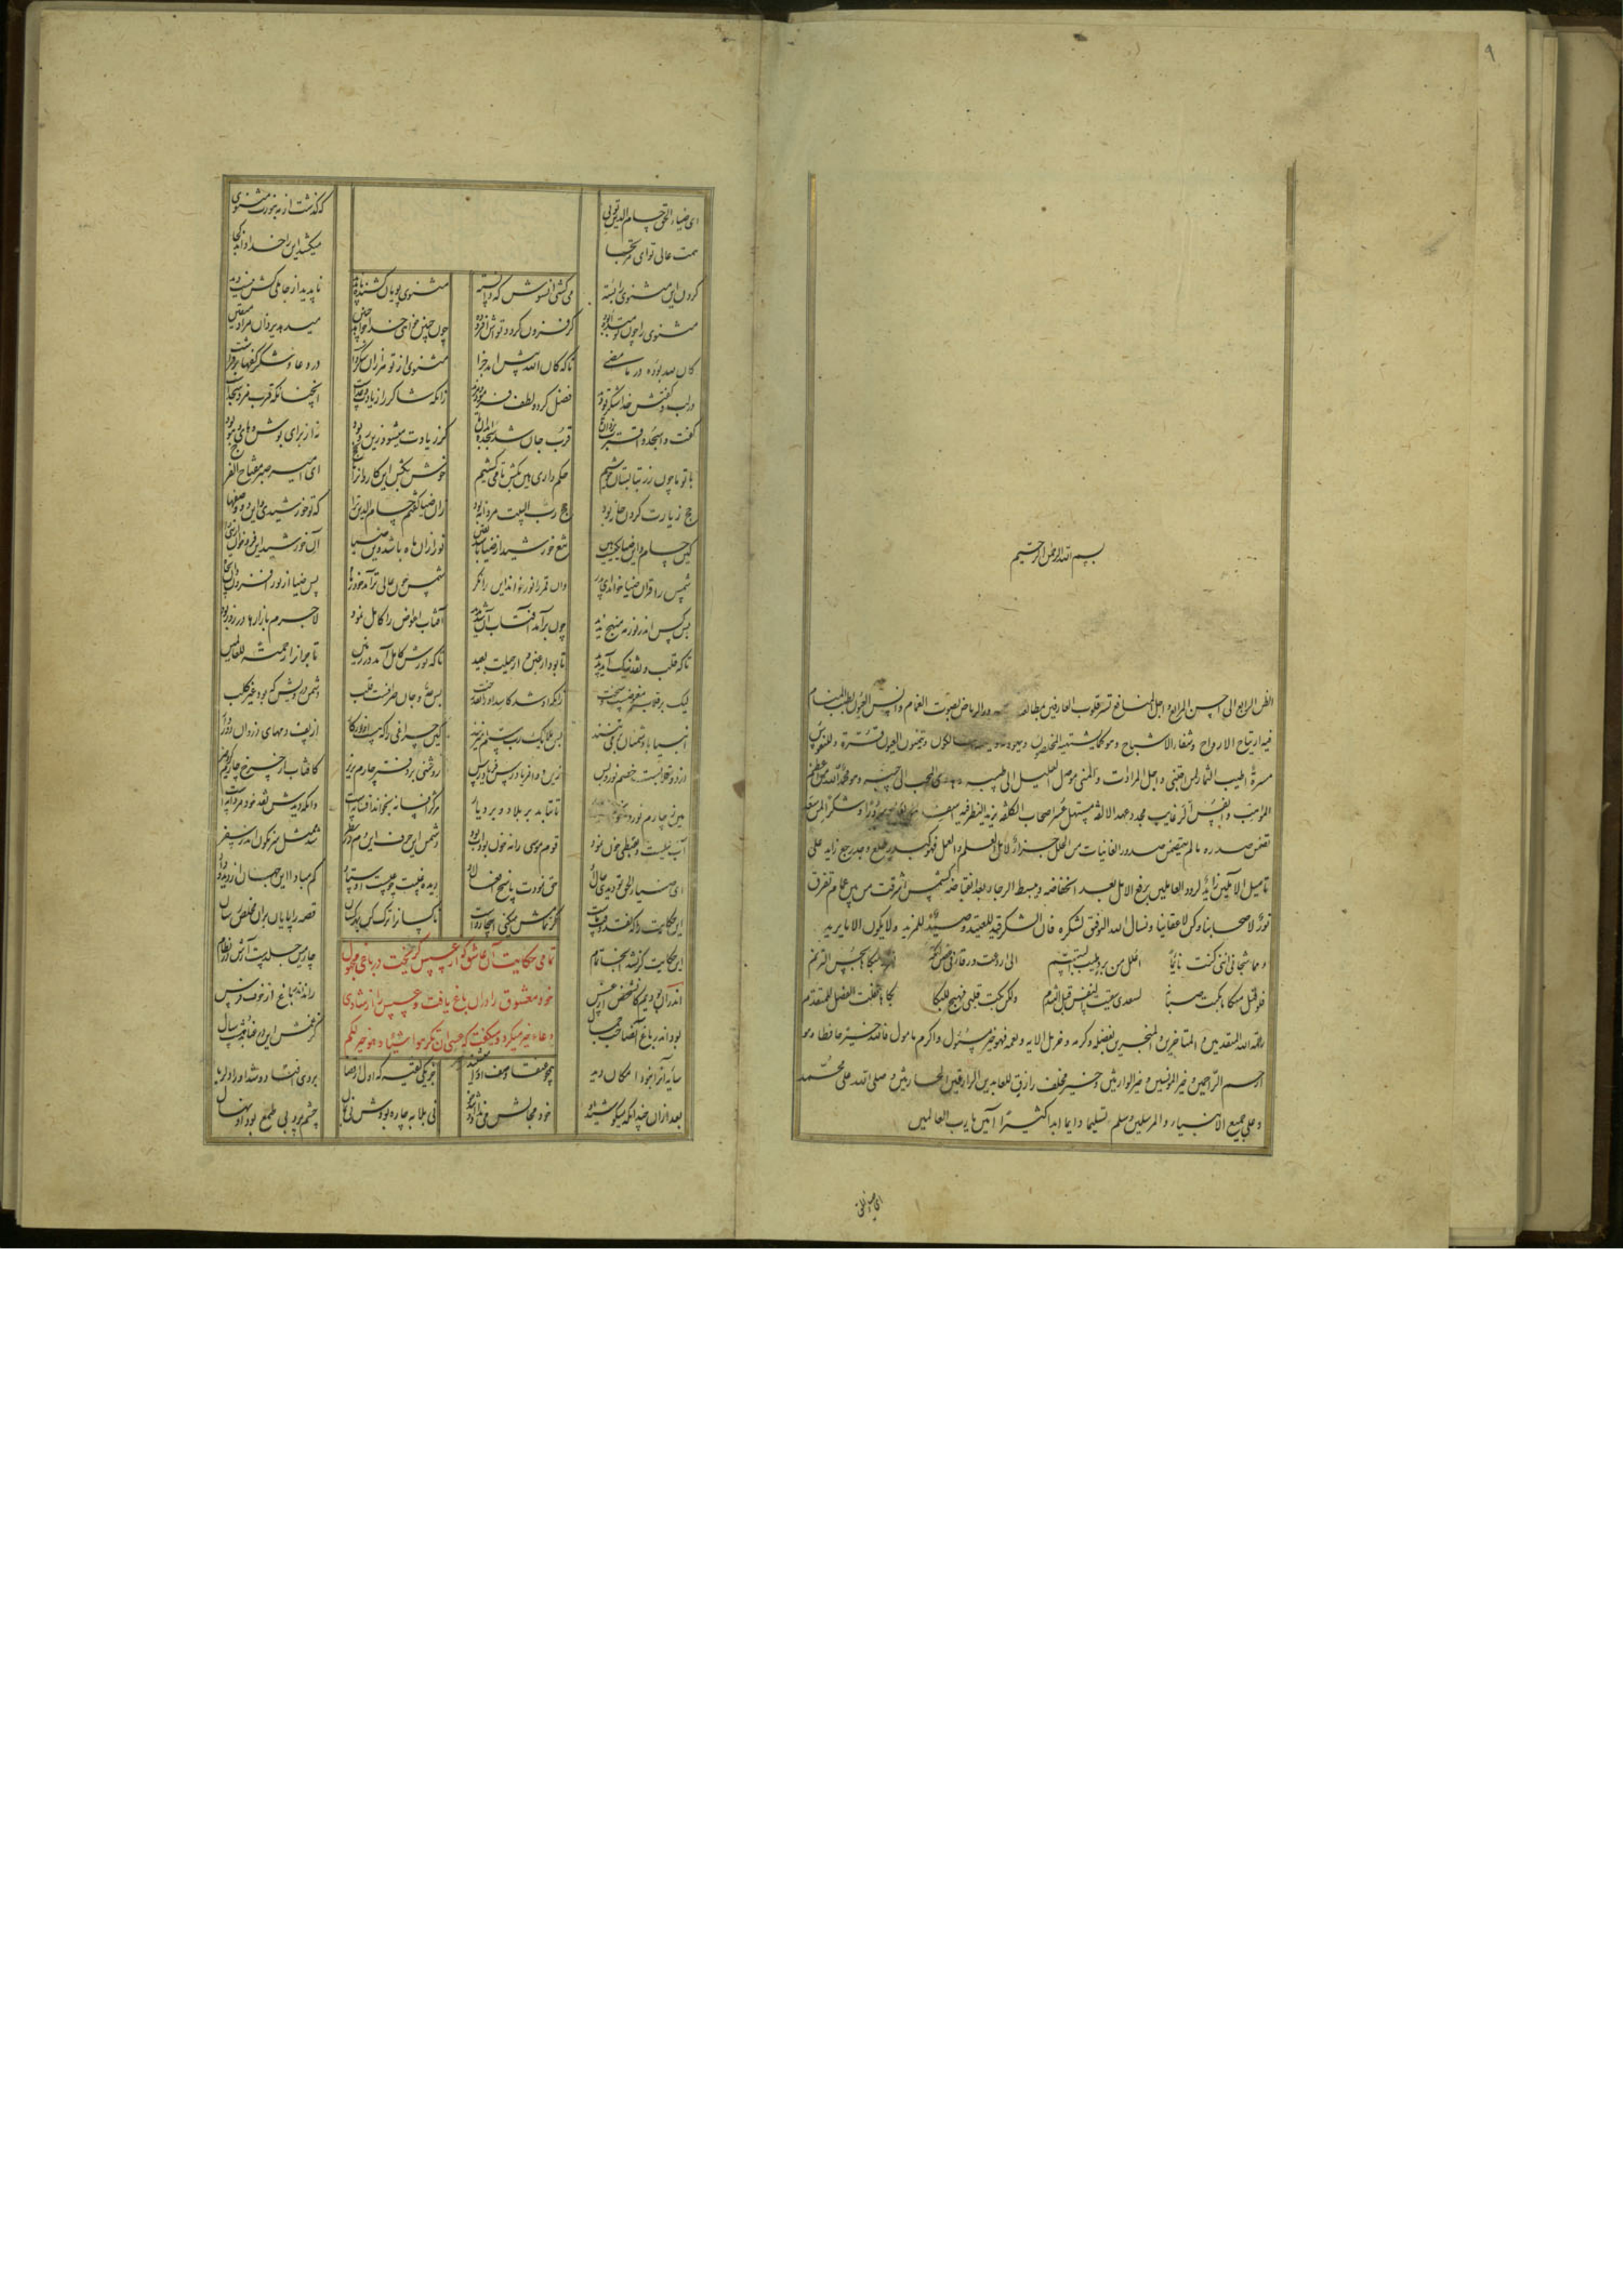 بسم الله الرحمن الرحیم
الظعن الرابع الی احسن المرابع و اجل المنافع تسر قلوب العارفین بمطالعته کسرور الریاض بصوت الغمام و انس العیون بطیب المنام
فیه ارتیاح الارواح و شفاء الاشباح و هو کما یشتهیه المخلصون و یهوونه السالکون و یتمنونه للعیون قرة و للنفوس
مسرة اطیب الثمار لمن اجتنی و اجل المرادات و المنی موصل العلیل الی طبیبه و هادی المحب الی حبیبه و هو بحمد الله من اعظم
المواهب و انفس الرغایب مجدد عهد الالفة مسهل عسر اصحاب الکلفة یزید النظر فیه سرورا و شکرا لمن سعد
تضمن صدره ما لم یتضمن صدور الغانیات من الحلل جزاء لاهل العلم و العمل فهو کبدر طلع و جد رجع زاید علی
تامیل الآملین رائد لرود العاملین یرفع الامل بعد انخفاضه و یبسط الرجاء بعد انقباضه کشمس اشرقت من بین غمام تفرق
نور لاصحابنا و کنز لاعقابنا و نسأل الله التوفیق لشکره فان الشکر قید للعتید و صید للمزید و لا یکون الا ما یرید
و مما شجانی اننی کنت نائما اعلل من برد بطیب التنسم الی ان دعت ورقاء فی غصن ایکة تغرد مبکاها بحسن الترنم
فلو قبل مبکاها بکیت صبابة لسعدی شفیت النفس قبل التندم ولکن بکت قبلی فهیج لی البکا بکاها فقلت الفضل للمتقدم
رحمة الله المتقدمین و المتاخرین و المنجزین بفضله و کرمه و جزیل آلائه و نعمه فهو خیر مسئول و اکرم مامول فالله خیر حافظا و هو
ارحم الراحمین و خیر المونسین و خیر الوارثین و خیر مخلف رازق للعابدین الزارعین الحارثین و صلی الله علی محمد
و علی جمیع الانبیاء و المرسلین و سلم تسلیما دایما ابدا کثیرا آمین یا رب العالمین
ای ضیاء الحق حسام الدین توی که گذشت از مه بنورت مثنوی
همت عالی تو ای مرتجا میکشد این را خدا داند کجا
گردن این مثنوی را بسته می کشی آنسوش که دانسته مثنوی پویان کشنده ناپدید ناپدید از جاهلی کش نیست دید
مثنوی را چون تو مبدا بوده گر فزون گردد تواش افزوده چون چنین خواهی خدا خواهد چنین میدهد یزدان مراد متقین
کان لله بوده در ما مضی تا که کان الله پیش آمد جزا مثنوی از تو هزاران شکر داشت در دعا و شکر کفها برفراشت
در لب و کفش خدا شکر تو دید فضل کرد و لطف فرمود و مزید زانکه شاکر را زیادت وعده است آنچنانکه قرب مزد سجده است
گفت واسجد واقترب یزدان ما قرب جان شد سجده ابدان ما گر زیادت میشود زین رو بود نه از برای بوش و های و هو بود
با تو ما چون رز بتابستان خوشیم حکم داری هین بکش تا می کشیم خوش بکش این کاروان را تا بحج ای امیر صبر مفتاح الفرج
حج زیارت کردن خانه بود حج رب البیت مردانه بود زان ضیا گفتم حسام الدین ترا که تو خورشیدی و این دو وصفها
کین حسام و این ضیا یکیست هین تیغ خورشید از ضیا باشد یقین نور از آن ماه باشد وین ضیا آن خورشید این فرو خوان از نبا
شمس را قرآن ضیا خواند ای پدر وان قمر را نور خواند این را نگر شمس چون عالی تر آمد خود ز ماه پس ضیا از نور افزون دان بجاه
بس کس اندر نور مه منهج ندید چون برآمد آفتاب آن شد پدید آفتاب اعواض را کامل نمود لاجرم بازارها در روز بود
تا که قلب و نقد نیک آید پدید تا بود از غبن و از حیلت بعید تا که نورش کامل آمد در زمین تاجران را رحمة للعالمین
لیک بر قلاب مبغوضست و سخت زانکه ازو شد کاسد او را نقد و رخت پس عدو جان صرافست قلب دشمن درویش که بود غیر کلب
انبیا با دشمنان بر می تنند پس ملایک رب سلم میزنند کین چراغی را که هست او نور کار از پف و دمهای دزدان دور دار
دزد و قلابست خصم نور بس زین دو ای فریادرس فریاد رس روشنی بر دفتر چارم بریز کافتاب از چرخ چارم کرد خیز
هین ز چارم نور ده تا بتابد بر بلاد و بر دیار هر کش افسانه بخواند افسانه است وانکه دیدش نقد خود مردانه است
آب نیلست و بقبطی خون نمود قوم موسی را نه خون بود آب بود دشمن این حرف این دم در نظر شد ممثل سرنگون اندر سقر
ای ضیاء الحق تو دیدی حال او حق نمودت پاسخ افعال او دیده غیبت چو غیبست اوستاد کم مبادا این جهان این دید و داد
این حکایت را که نقد وقت ماست گر تمامش میکنی اینجا رواست ناکسان را ترک کن بهر کسان قصه را پایان بر و مخلص رسان
این حکایت گر نشد آنجا تمام چارمین جلدست آرش در نظام
تمامی حکایت آن عاشق که از عسس گریخت در باغی مجهول
خود معشوق را در آن باغ یافت و عسس را از شادی
دعاء خیر میکرد و میگفت که عسی ان تکرهوا شیئا و هو خیر لکم
اندر آن بودیم کان شخص از عسس راند اندر باغ از خوف فرس
بود اندر باغ آن صاحب جمال کز غمش این در عنا بد هشت سال
سایه او را نبود امکان دید همچو عنقا وصف او را می شنید جز یکی لقیه که اول از قضا بر وی افتاد و شد او را دلربا
بعد از آن چندانکه میکوشید او خود مجالش می نداد آن تندخو نی بلابه چاره بودش نی بمال چشم پر و بی طمع بود آن نهال
ای ضیاء الحق
۹